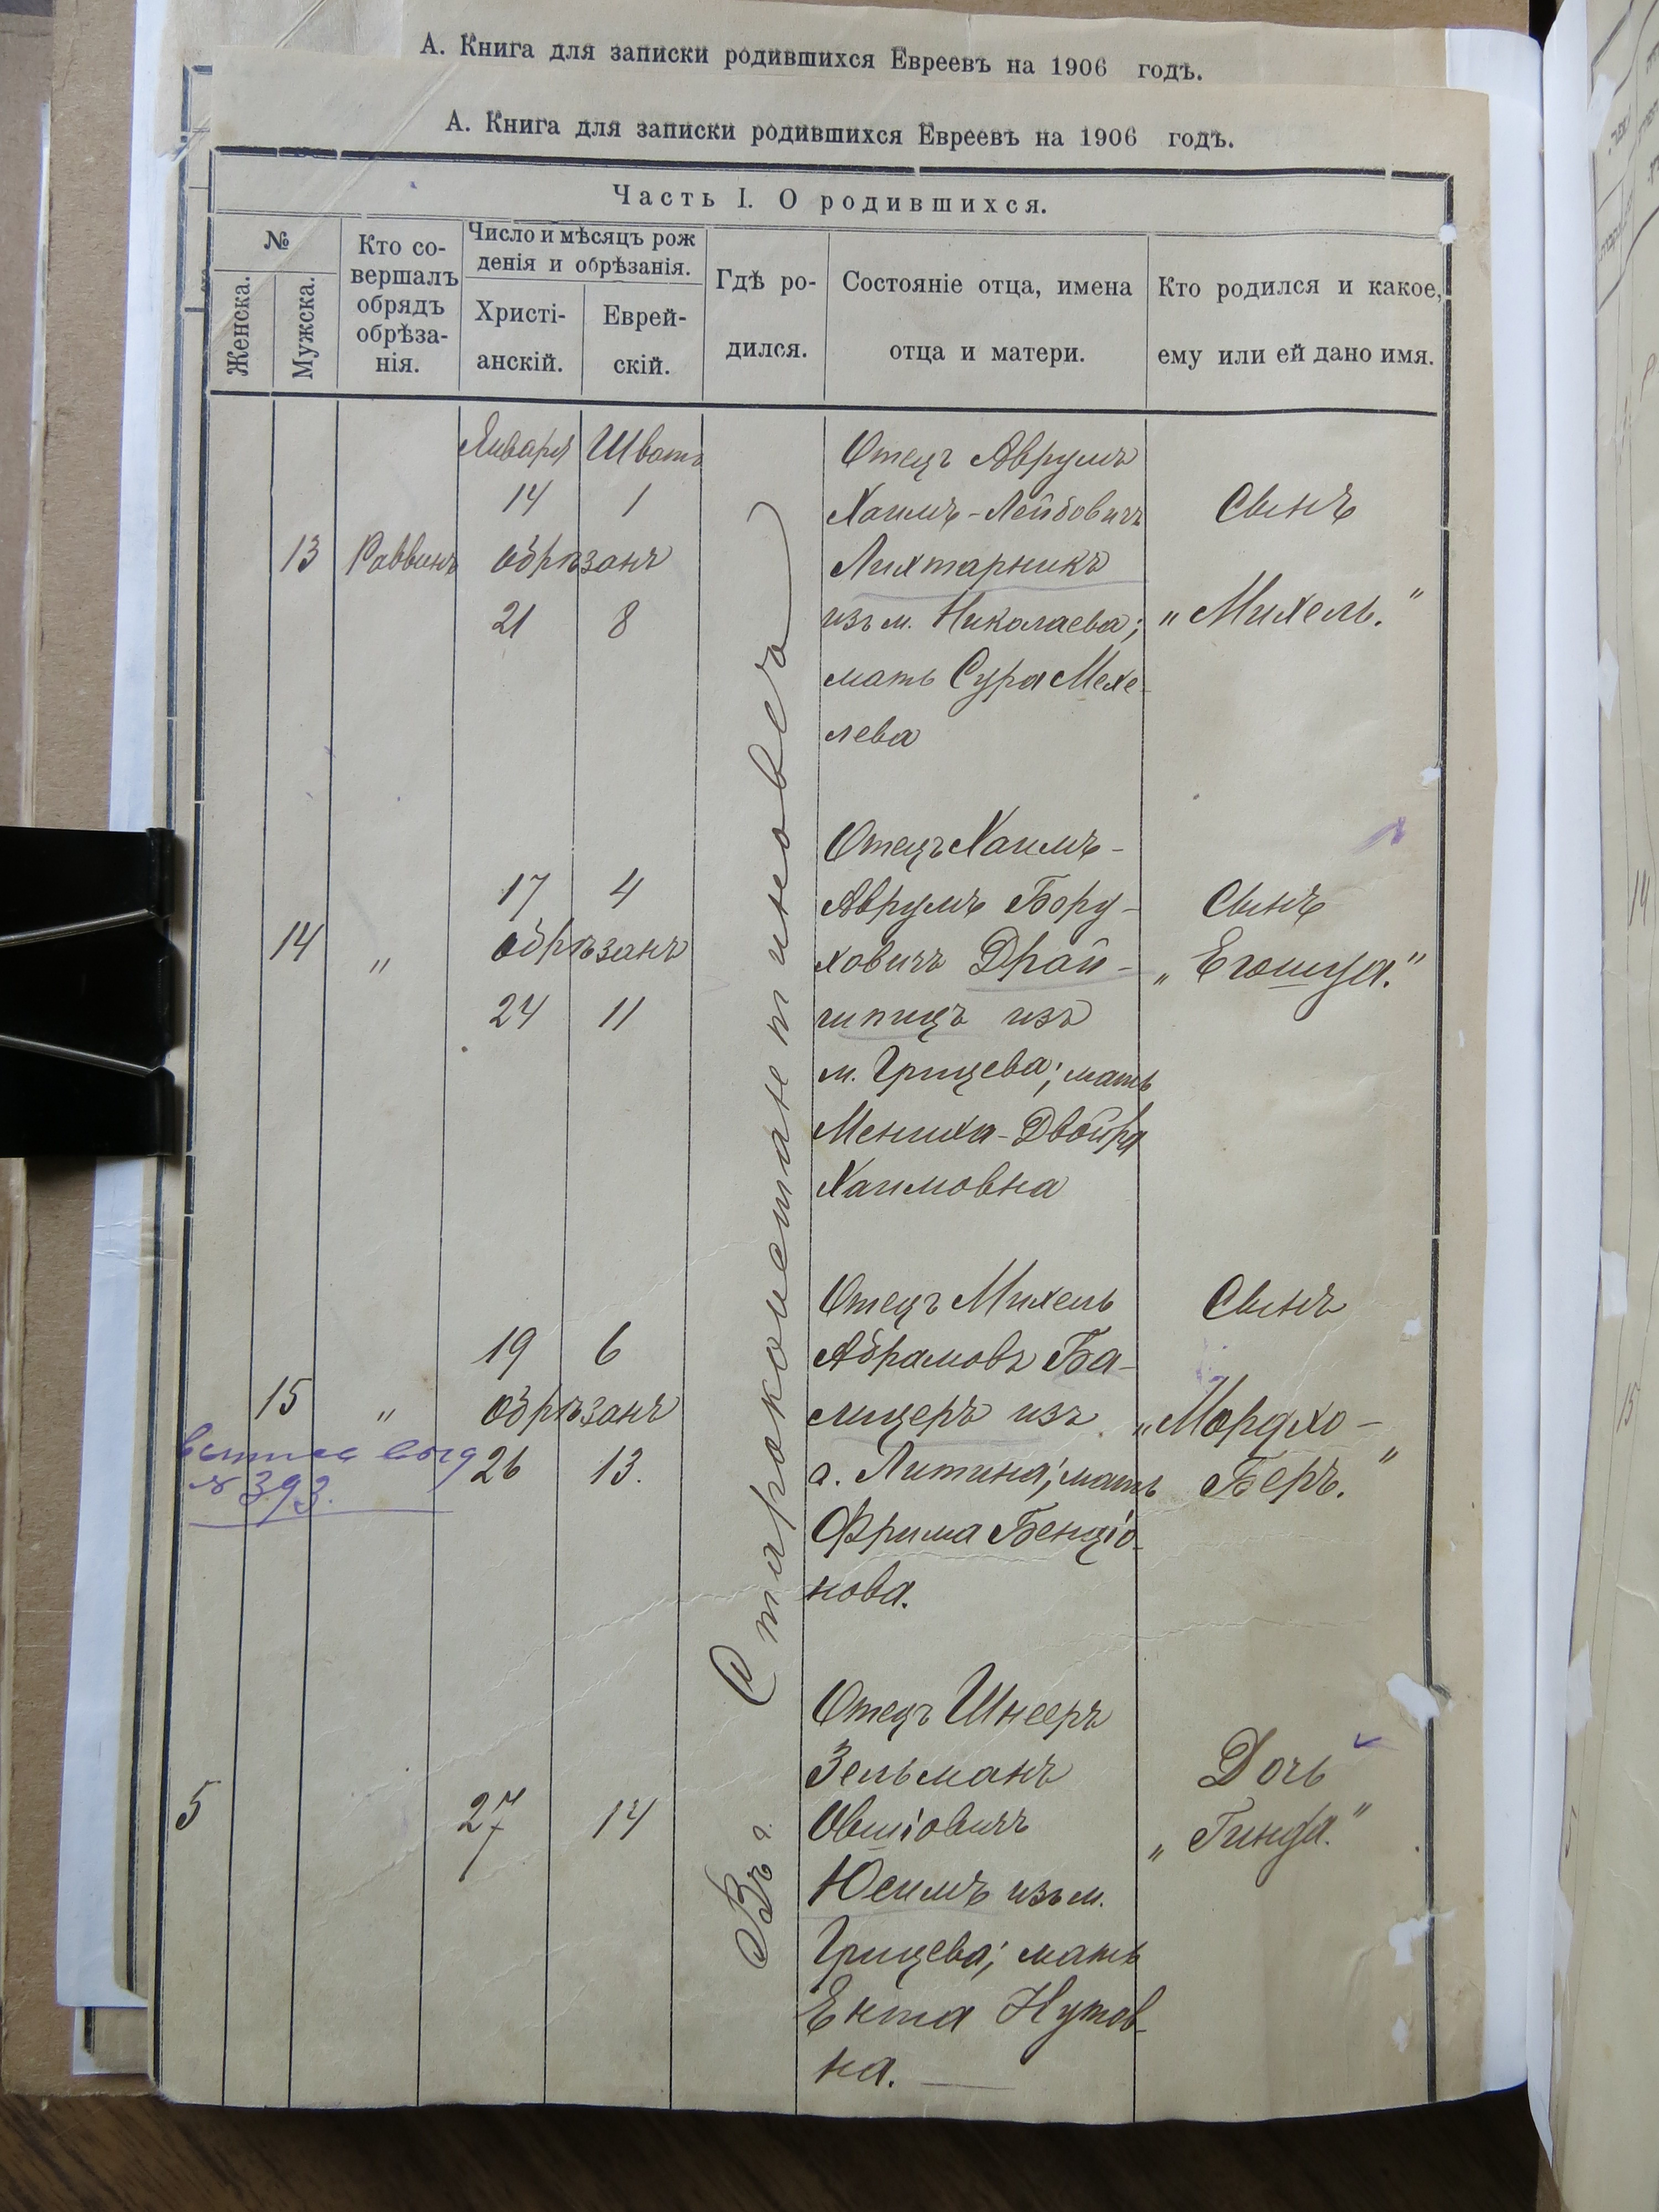 А. Книга для записки родившихся Евреевъ на 1906 годъ.
А. Книга для записки родившихся Евреевъ на 1906 годъ.
Часть I. О родившихся.
№
Женска.
Мужска.
Кто со-
вершалъ
обрядъ
обрѣза-
нія.
Число и мѣсяцъ рож
денія и обрѣзанія.
Христі-
анскій.
Еврей-
скій.
Гдѣ ро-
дился.
Состояніе отца, имена
отца и матери.
Кто родился и какое,
ему или ей дано имя.
Въ г. Староконстантиновѣ
13
Раввинъ
Января Шватъ
14 1
обрѣзанъ
21 8
Отецъ Аврумъ
Хаимъ-Лейбовичъ
Лихтарникъ
изъ м. Николаева;
мать Сура Мехе-
лева
Сынъ
„Михель."
14
„
17 4
обрѣзанъ
24 11
Отецъ Хаимъ-
Аврумъ Бору-
ховичъ Драй-
шпицъ изъ
м. Грицева; мать
Мениха-Двойра
Хаимовна
Сынъ
„Егошуа."
15
„
19 6
обрѣзанъ
26 13.
№ 393.
Отецъ Михель
Абрамовъ Ба-
лицеръ изъ
г. Летина; мать
Фрима Бенціо-
нова.
Сынъ
„Мордхо-
Беръ."
5
27 14
Отецъ Шнееръ
Зельманъ
Овшіовичъ
Юсимъ изъ м.
Грицева; мать
Ента Нутов-
на.
Дочь
„Гинда."